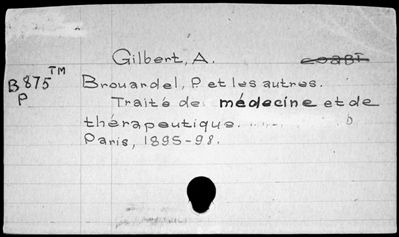 Gilbert, A.
B875TM
P
Brouardel, P et les autres.
Traité de médecine et de
thérapeutique.
Paris, 1895-98.